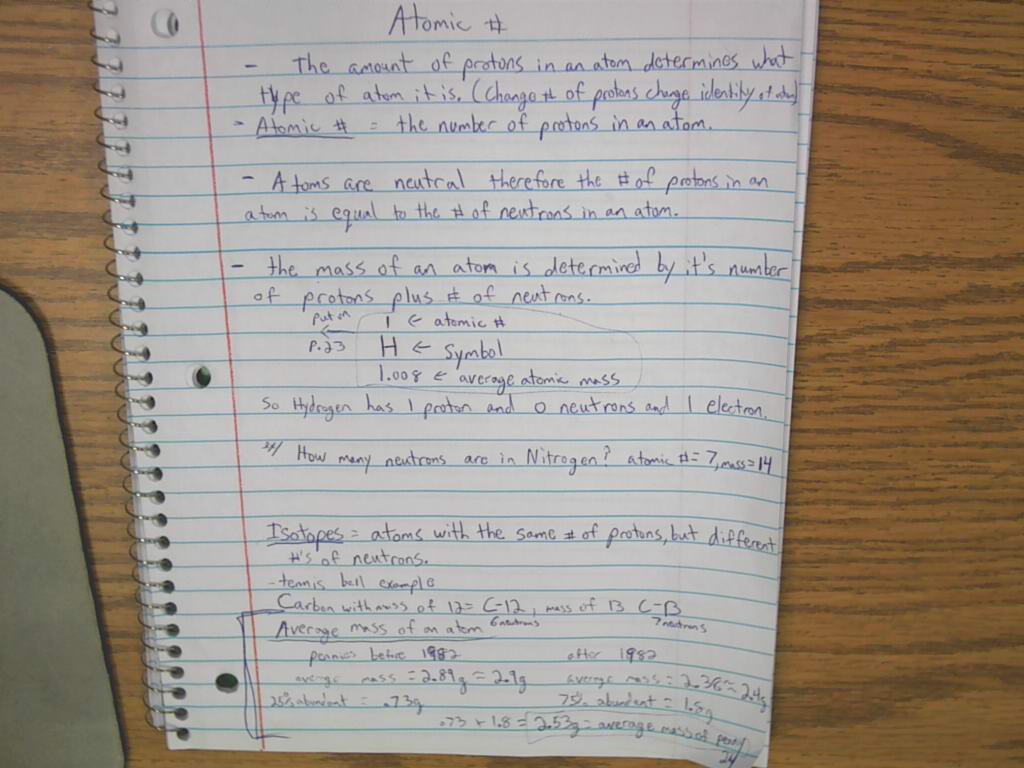 Atomic #
- The amount of protons in an atom determines what
type of atom it is. (Change # of protons change identity of atom)
- Atomic # = the number of protons in an atom.
- Atoms are neutral therefore the # of protons in an
atom is equal to the # of neutrons in an atom.
- the mass of an atom is determined by it's number
of protons plus # of neutrons.
put on
P.23
1 ← atomic #
H ← Symbol
1.008 ← average atomic mass
So Hydrogen has 1 proton and 0 neutrons and 1 electron.
ex/ How many neutrons are in Nitrogen? atomic #=7, mass=14
Isotopes = atoms with the same # of protons, but different
#'s of neutrons.
- tennis ball example
Carbon with mass of 12= C-12, mass of 13 C-13
6 neutrons 7 neutrons
Average mass of an atom
pennies before 1982 after 1982
average mass = 2.89g ≈ 2.9g average mass = 2.38 ≈ 2.4g
25% abundant = .73g 75% abundant = 1.8g
.73 + 1.8 = 2.53g = average mass of penny
24